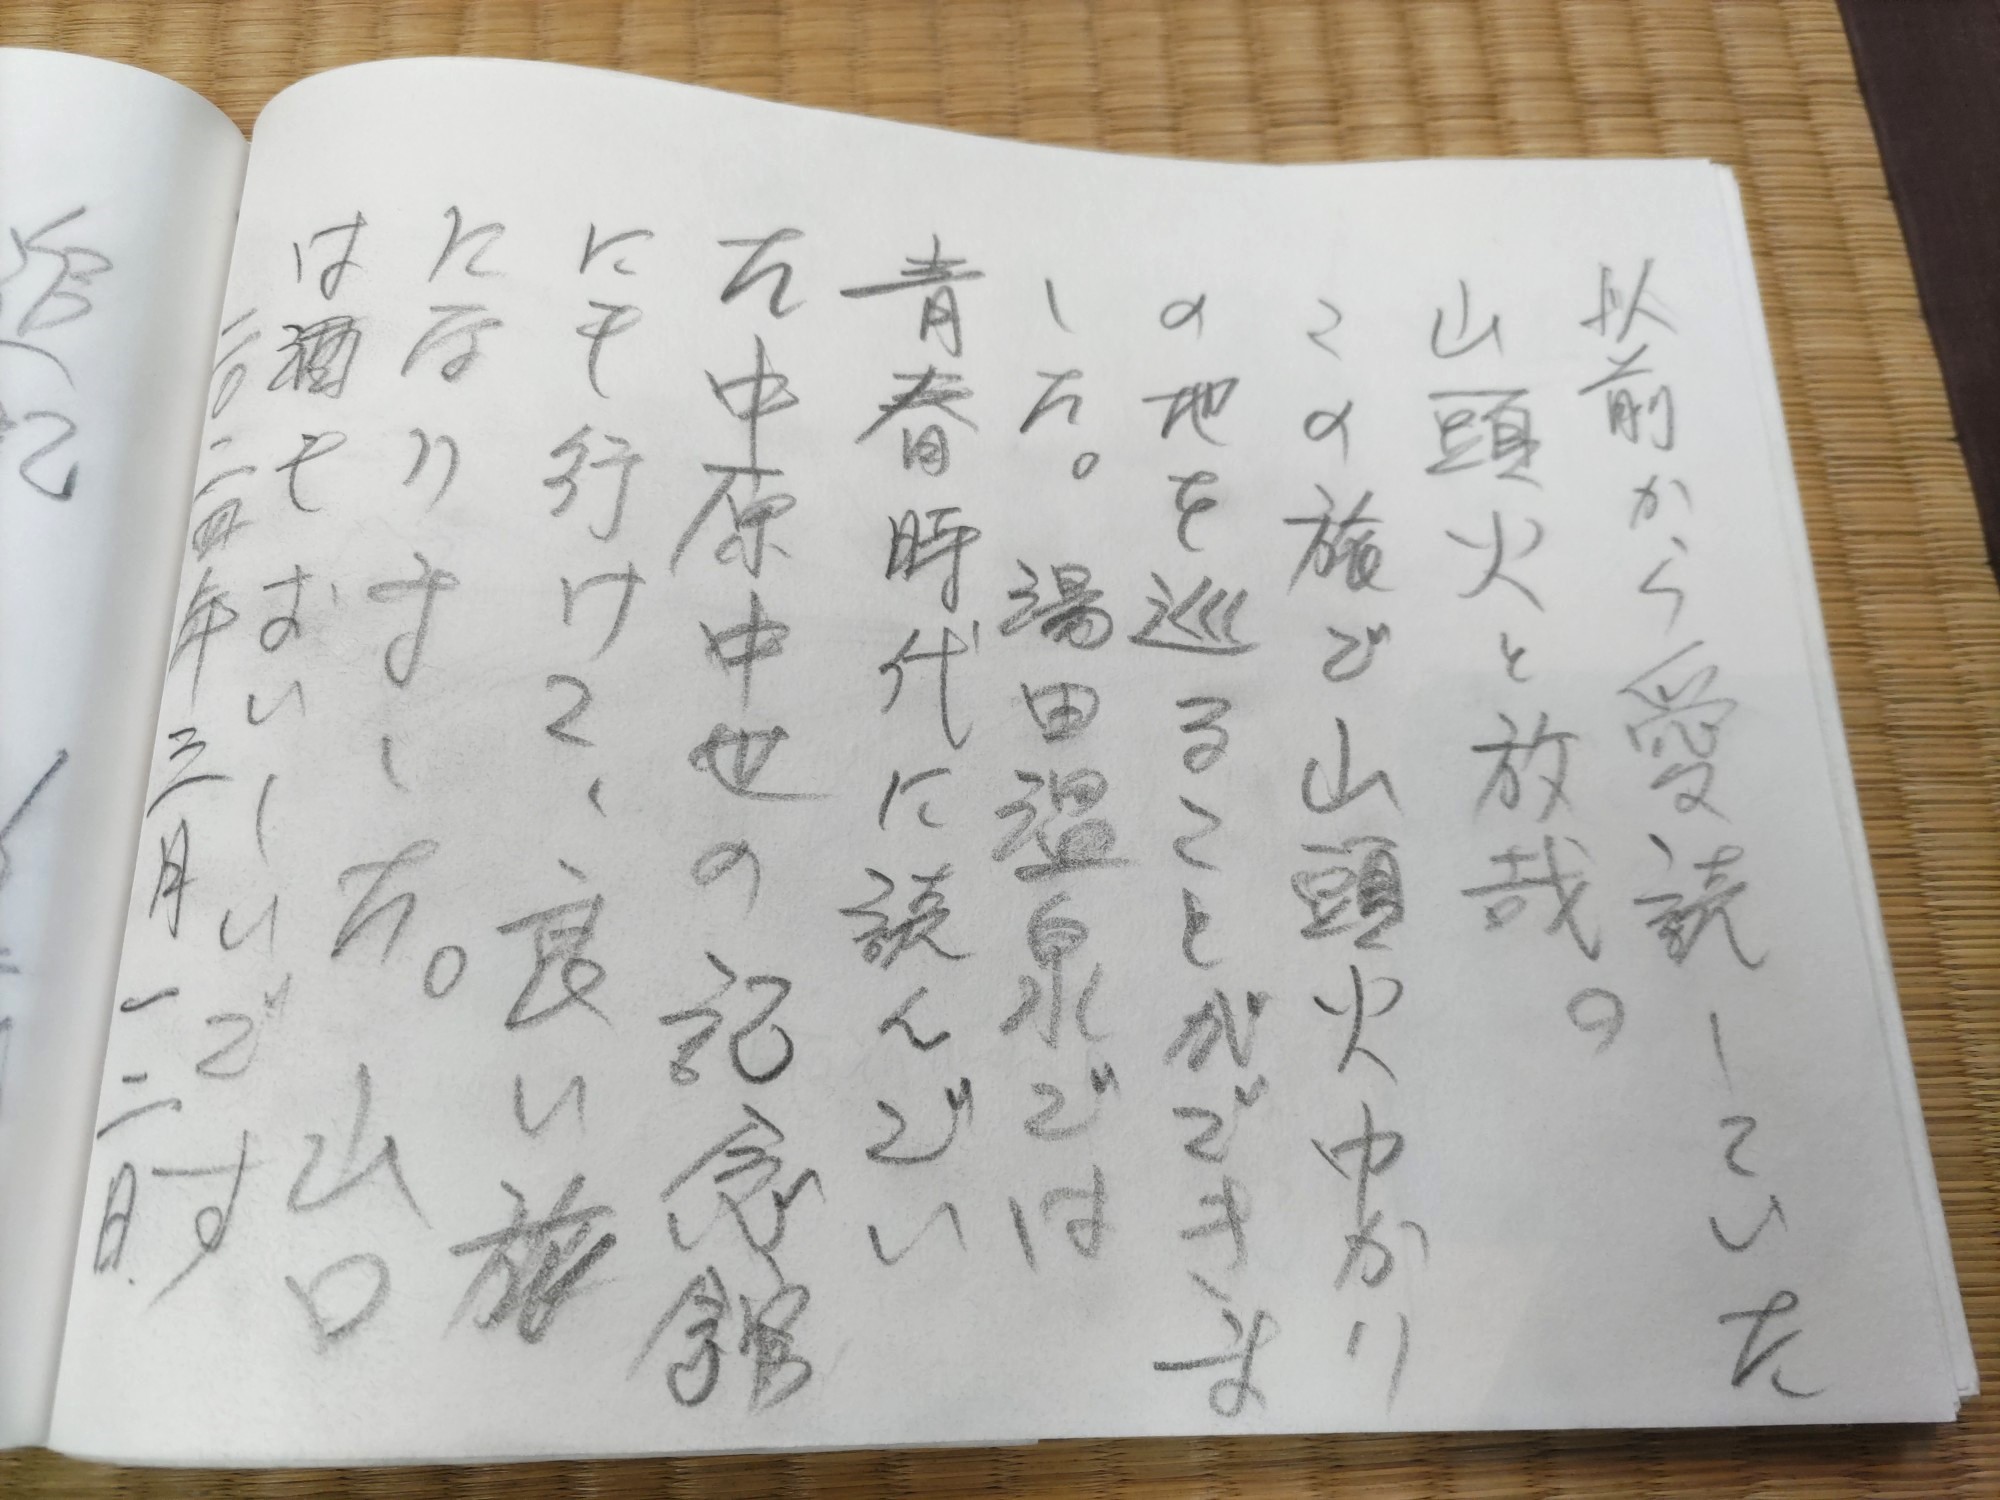 以前から愛読していた
山頭火と放哉の
この旅で山頭火ゆかり
の地を巡ることができま
した。湯田温泉では
青春時代に読んでい
た中原中也の記念館
にも行けて、良い旅
になりました。山口
は酒もおいしいです
二〇二四年三月一二日